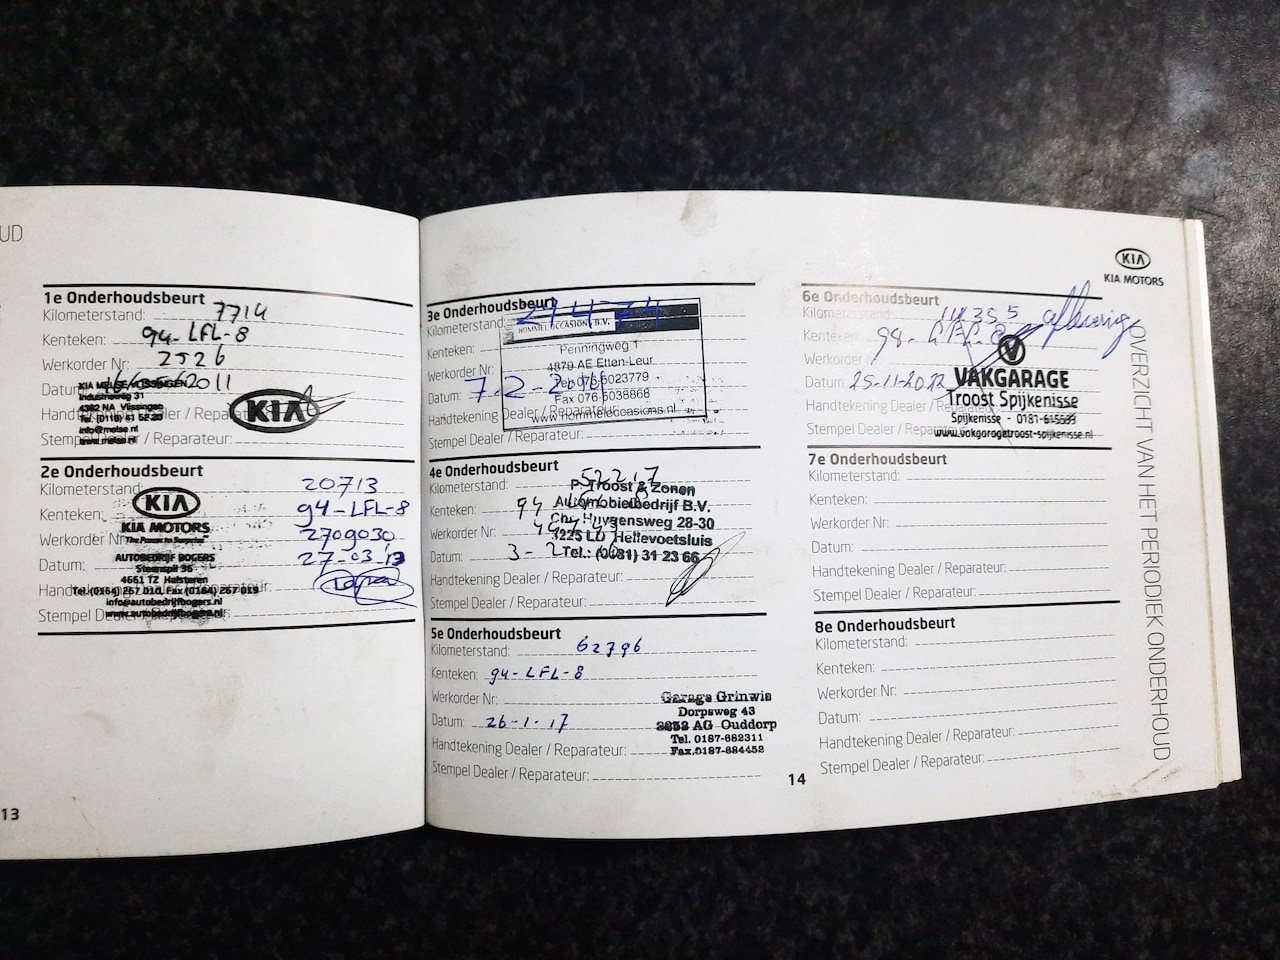 UD
1e Onderhoudsbeurt
Kilometerstand: 7714
Kenteken: 94-LFL-8
Werkorder Nr: 2526
Datum: 2011
KIA
Industrieweg 31
4382 NA Vlissingen
Tel. (0118) 41
info@melse.nl
www.melse.nl
Stempel Dealer / Reparateur:
2e Onderhoudsbeurt
Kilometerstand: 20713
Kenteken: 94-LFL-8
Werkorder Nr: 2709030
Datum: 27-03-'13
KIA
KIA MOTORS
The Power to Surprise
AUTOBEDRIJF BOGERS
Steenspil 36
4661 TZ Halsteren
Tel.(0164) 267 010, Fax (0164) 267 019
info@autobedrijfbogers.nl
www.autobedrijfbogers.nl
Stempel Dealer / Reparateur:
13
3e Onderhoudsbeurt
Kilometerstand: 29474
Kenteken:
Werkorder Nr:
Datum: 7-2-
HOMMEL OCCASIONS B.V.
Penningweg 1
4879 AE Etten-Leur
Tel 076-5023779
Fax 076-5038868
www.hommeloccasions.nl
Handtekening Dealer / Reparateur:
Stempel Dealer / Reparateur:
4e Onderhoudsbeurt
Kilometerstand: 52217
Kenteken: 94
Werkorder Nr:
Datum: 3-2
P. Troost & Zonen
Automobielbedrijf B.V.
Chr. Huygensweg 28-30
3225 LD Hellevoetsluis
Tel.: (0181) 31 23 66
Handtekening Dealer / Reparateur:
Stempel Dealer / Reparateur:
5e Onderhoudsbeurt
Kilometerstand: 62796
Kenteken: 94-LFL-8
Werkorder Nr:
Datum: 26-1-17
Handtekening Dealer / Reparateur:
Stempel Dealer / Reparateur:
Garage Grinwis
Dorpsweg 43
3253 AG Ouddorp
Tel. 0187-682311
Fax.0187-684452
14
KIA
KIA MOTORS
6e Onderhoudsbeurt
Kilometerstand: aflevering
Kenteken:
Werkorder
Datum 25-11-2022
Handtekening Dealer / Reparateur:
Stempel Dealer / Reparateur:
VAKGARAGE
Troost Spijkenisse
Spijkenisse - 0181-615533
www.vakgaragetroost-spijkenisse.nl
7e Onderhoudsbeurt
Kilometerstand:
Kenteken:
Werkorder Nr:
Datum:
Handtekening Dealer / Reparateur:
Stempel Dealer / Reparateur:
8e Onderhoudsbeurt
Kilometerstand:
Kenteken:
Werkorder Nr:
Datum:
Handtekening Dealer / Reparateur:
Stempel Dealer / Reparateur:
OVERZICHT VAN HET PERIODIEK ONDERHOUD